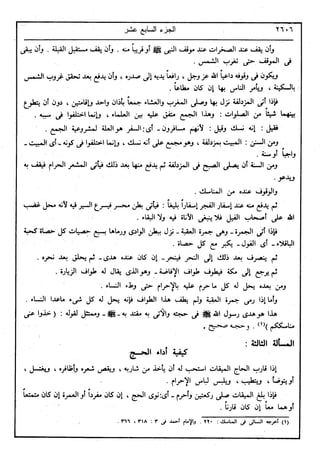 ٢٦٠٦ الجزء السابع عشر
وأن يقف عند الصخرات عند موقف النبي ﷺ أو قريباً منه . وأن يقف مستقبل القبلة . وأن يبقى
في الموقف حتى تغرب الشمس .
ويكون في وقوفه داعياً الله عز وجل ، رافعاً يديه إلى صدره ، وأن يدفع بعد تحقق غروب الشمس
بالسكينة ، ويأمر الناس بها إن كان مطاعاً .
فإذا أتى المزدلفة نزل بها وصلى المغرب والعشاء جمعاً بأذان واحد وإقامتين ، دون أن يتطوع
بينهما شيئاً من الصلوات : وهذا الجمع متفق عليه بين العلماء ، وإنما اختلفوا في سببه .
فقيل : إنه نسك وقيل : لأنهم مسافرون - أي : السفر هو العلة لمشروعية الجمع .
ومن السنن : المبيت بمزدلفة ، وهو مجمع على أنه نسك ، وإنما اختلفوا في كونه - أي المبيت -
واجباً أو سنة .
ومن السنة أن يصلى الصبح في المزدلفة ثم يدفع منها بعد ذلك فيأتى المشعر الحرام فيقف به
ويدعو .
والوقوف عنده من المناسك .
ثم يدفع منه عند إسفار الفجر إسفاراً بليغاً : فيأتى بطن محسر فيسرع السير فيه لأنه محل غضب
الله على أصحاب الفيل فلا ينبغى الأناة فيه ولا البقاء .
فإذا أتى الجمرة - وهى جمرة العقبة - نزل ببطن الوادى ورماها بسبع حصيات كل حصاة كحبة
الباقلاء - أى الفول - يكبر مع كل حصاة .
ثم ينصرف بعد ذلك إلى النحر فينحر - إن كان عنده هدى - ثم يحلق بعد نحره .
ثم يرجع إلى مكة فيطوف طواف الإفاضة - وهو الذي يقال له طواف الزيارة .
ومن بعده يحل له كل ما حرم عليه بالإحرام حتى وطء النساء .
وأما إذا رمى جمرة العقبة ولم يطف هذا الطواف فإنه يحل له كل شىء ماعدا النساء .
هذا هو هدى رسول الله ﷺ في حجته والآتى به مقتد به - ﷺ - وممتثل لقوله : (خذوا عنى
مناسككم )(١) . وحجه صحيح .
المسألة الثالثة :
كيفية أداء الحج
إذا قارب الحاج الميقات استحب له أن يأخذ من شاربه ، ويقص شعره وأظافره ، ويغتسل ،
أو يتوضأ ، ويتطيب ، ويلبس لباس الإحرام .
فإذا بلغ الميقات صلى ركعتين وأحرم - أى : نوى الحج ، إن كان مفرداً أو العمرة إن كان متمتعاً
أو هما معاً إن كان قارناً .
(١) أخرجه النسائى فى المناسك : ٢٢٠ . والإمام أحمد فى ٣ : ٣١٨ ، ٣٦٦ .